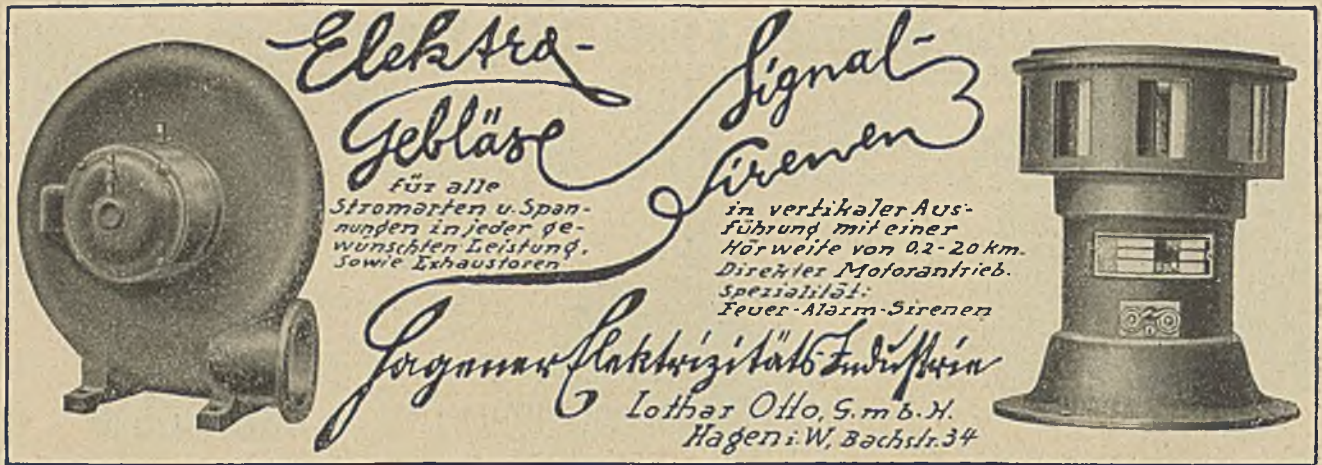 Elektro-
Gebläse
für alle
Stromarten u. Span-
nungen in jeder ge-
wünschten Leistung,
sowie Exhaustoren
Signal-
Sirenen
in vertikaler Aus-
führung mit einer
Hörweite von 0,2-20 km.
Direkter Motorantrieb.
Spezialität:
Feuer-Alarm-Sirenen
Hagener Elektrizitäts Industrie
Lothar Otto, G.m.b.H.
Hagen i. W, Bachstr. 34